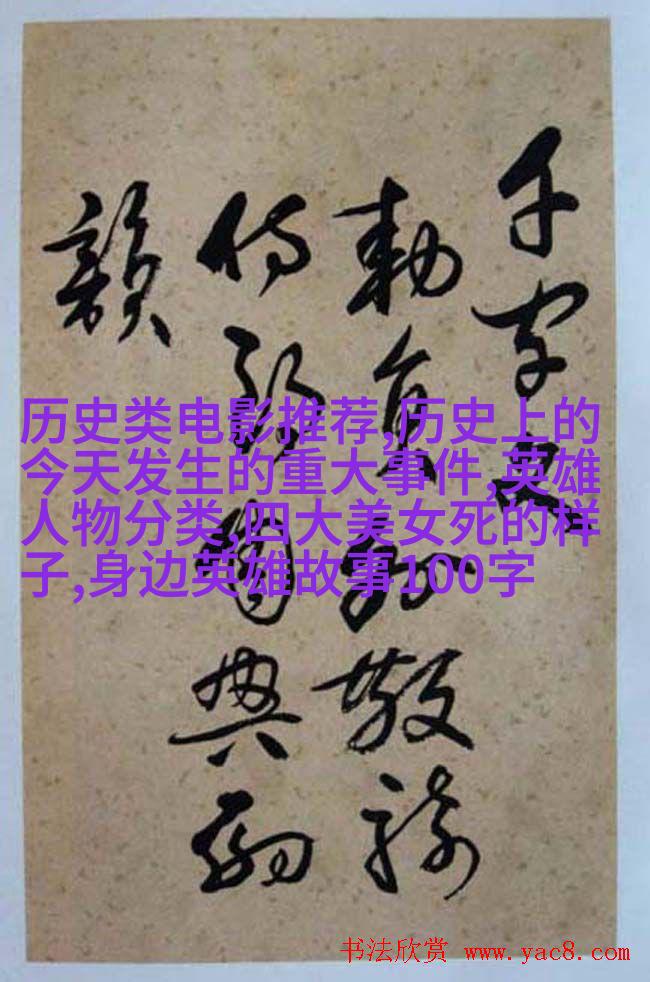 千字文
勅員外散騎
侍郎周興嗣
韻
历史类电影推荐,历史上的
今天发生的重大事件,英雄
人物分类,四大美女死的样
子,身边英雄故事100字
书法欣赏 www.yac8.com